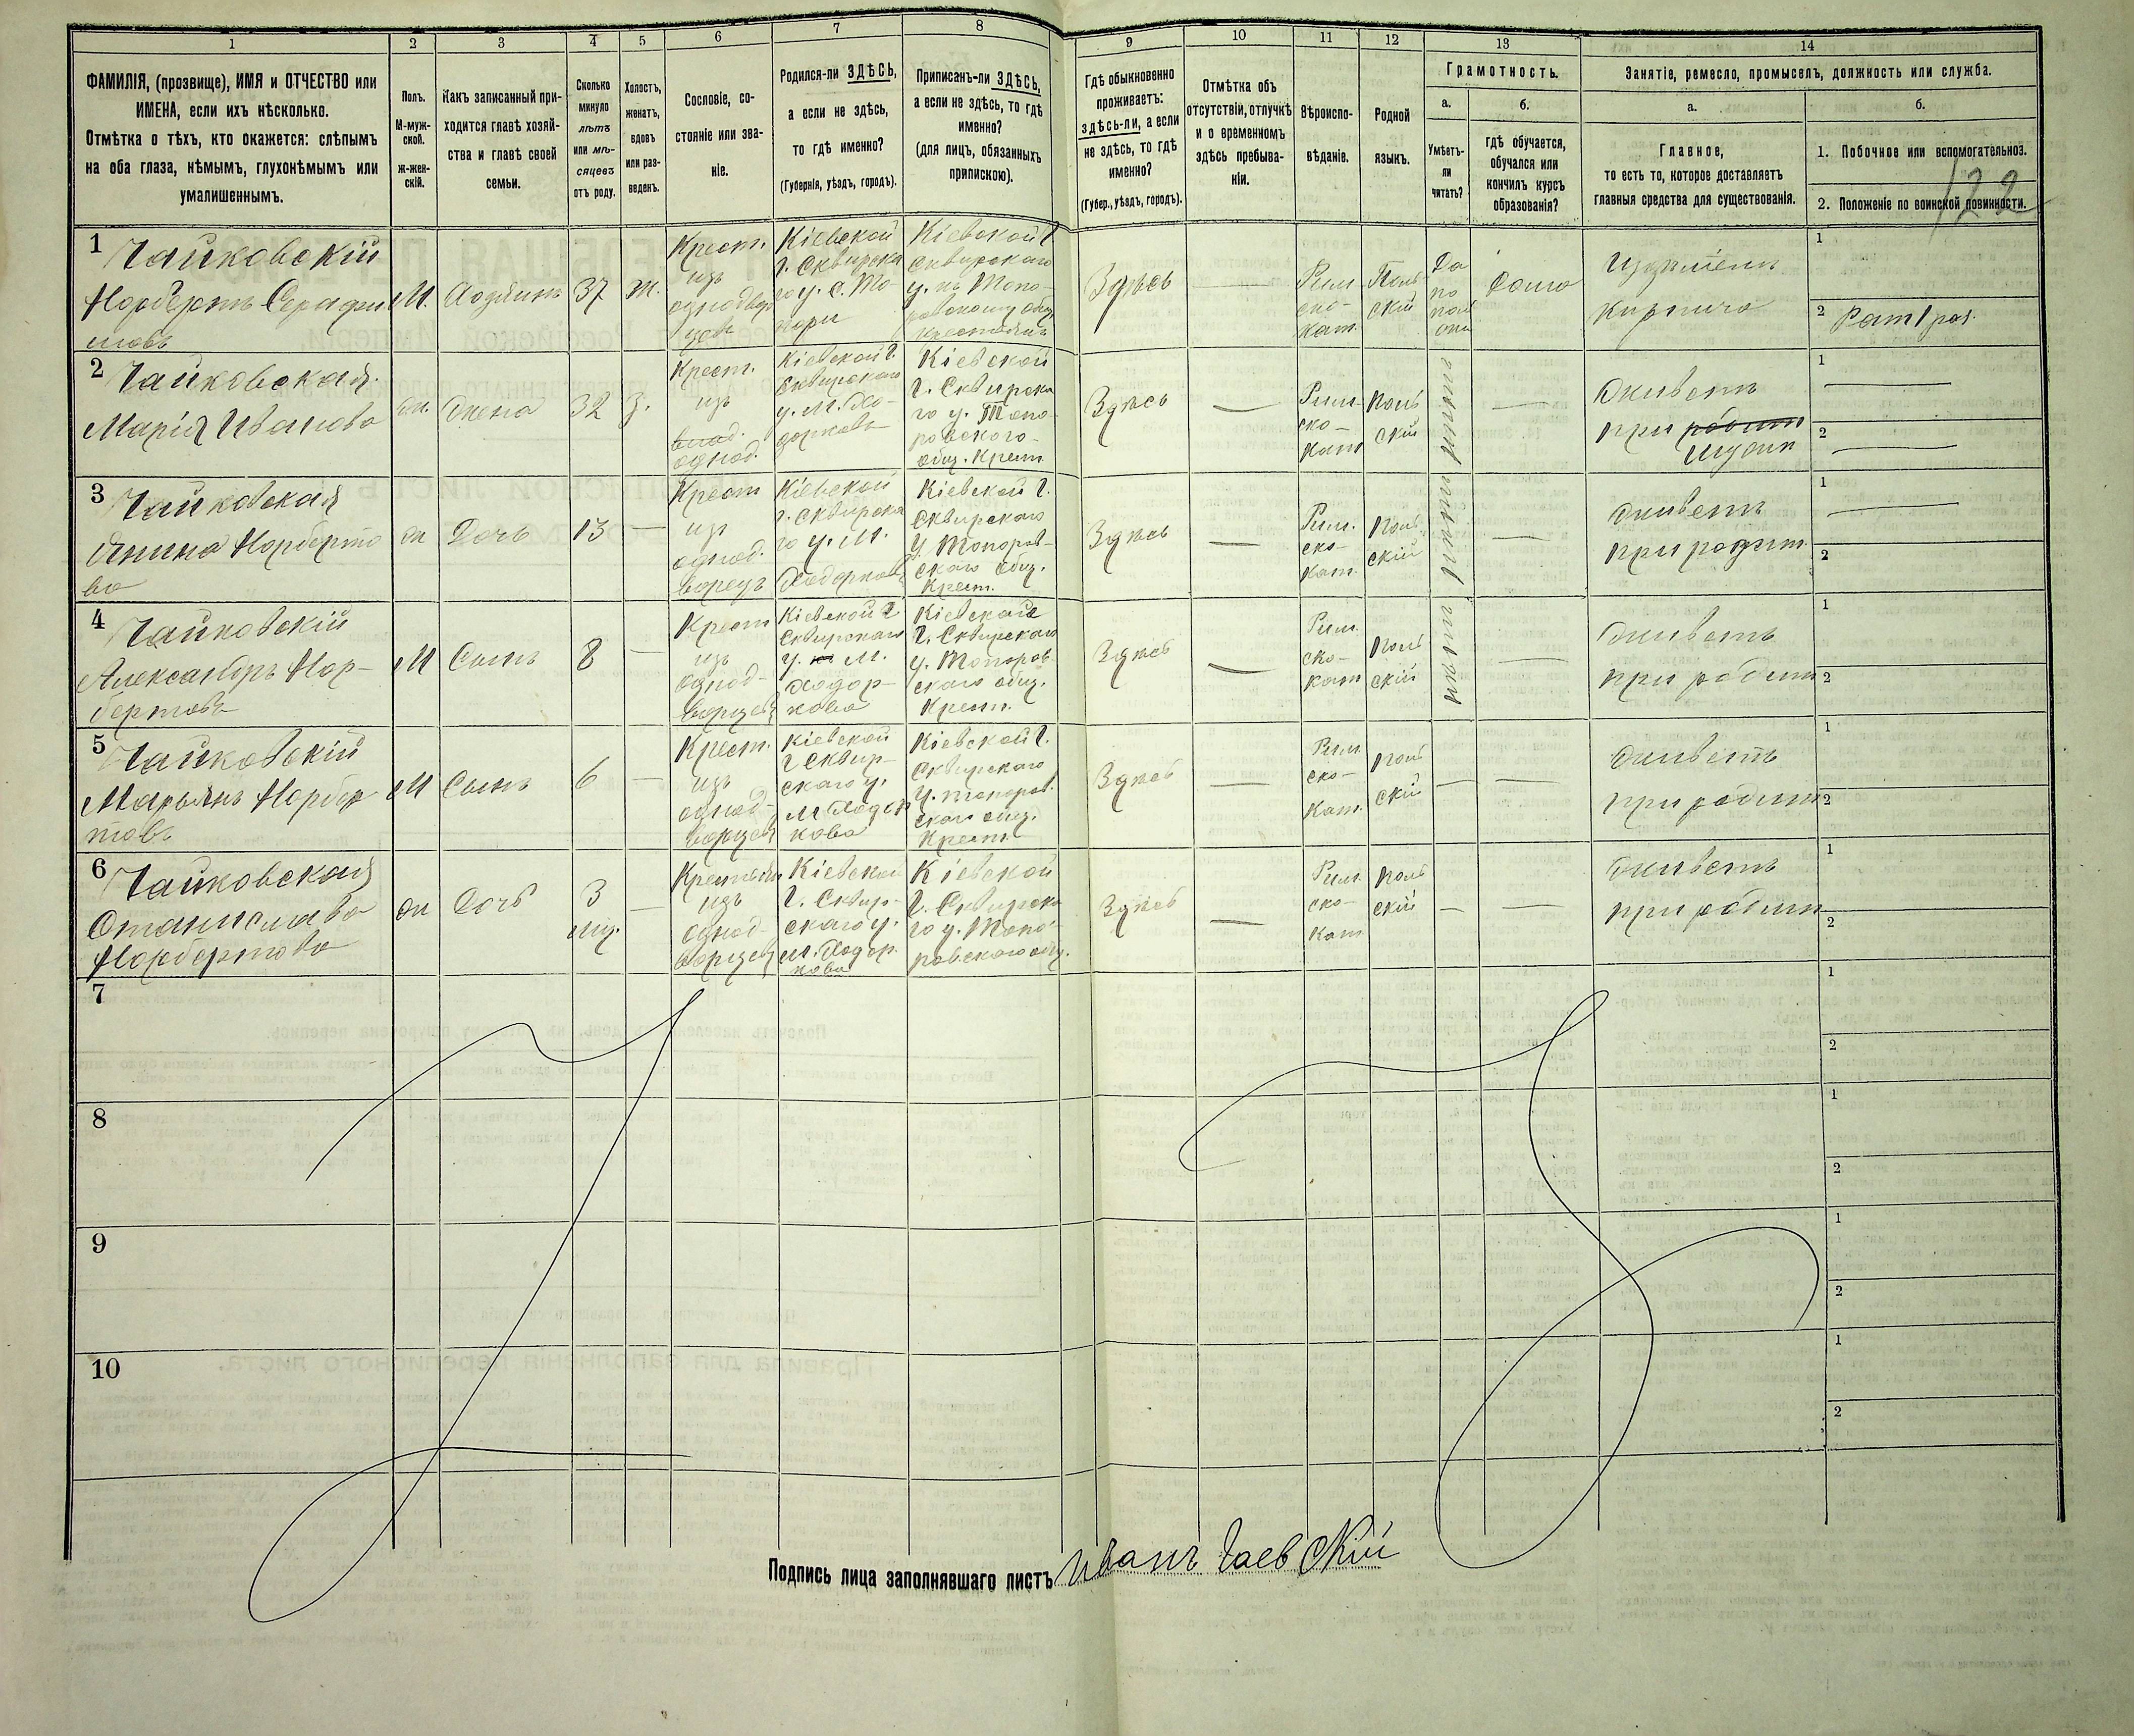 1
2
3
4
5
6
7
8
9
10
11
12
13
14
ФАМИЛІЯ, (прозвище), ИМЯ и ОТЧЕСТВО или
ИМЕНА, если ихъ нѣсколько.
Отмѣтка о тѣхъ, кто окажется: слѣпымъ
на оба глаза, нѣмымъ, глухонѣмымъ или
умалишеннымъ.
Полъ.
М-муж-
ской.
ж-жен-
скій.
Какъ записанный при-
ходится главѣ хозяй-
ства и главѣ своей
семьи.
Сколько
минуло
лѣтъ
или мѣ-
сяцевъ
отъ роду.
Холостъ,
женатъ,
вдовъ
или раз-
веденъ.
Сословіе, со-
стояніе или зва-
ніе.
Родился-ли ЗДѢСЬ,
а если не здѣсь,
то гдѣ именно?
(Губернія, уѣздъ, городъ).
Приписанъ-ли ЗДѢСЬ,
а если не здѣсь, то гдѣ
именно?
(для лицъ, обязанныхъ
припискою).
Гдѣ обыкновенно
проживаетъ:
здѣсь-ли, а если
не здѣсь, то гдѣ
именно?
(Губер., уѣздъ, городъ).
Отмѣтка объ
отсутствіи, отлучкѣ
и о временномъ
здѣсь пребыва-
ніи.
Вѣроиспо-
вѣданіе.
Родной
языкъ.
Грамотность.
а.
Умѣетъ-
ли
читать?
б.
гдѣ обучается,
обучался или
кончилъ курсъ
образованія?
Занятіе, ремесло, промыселъ, должность или служба.
а.
Главное,
то есть то, которое доставляетъ
главныя средства для существованія.
б.
1. Побочное или вспомогательное.
2. Положеніе по воинской повинности.
122
1
Чайковскій
Норберть Серафи
мовъ
М.
Хозяинъ
37
ж.
Крест.
изъ
однодвор
цевъ
Кіевской
г. Сквирска
го у. с. То
пори
Кіевской г.
Сквирскаго
у. къ Топо-
ровскому общ.
крестьянъ
Здѣсь
Рим
ско-
кат.
Поль
скій
Да
по
поль
ски
Дома
кирпича
1
2 Рат 1 раз.
2
Чайковская
Марія Иванова
ж.
жена
32
З.
Крест.
изъ
однод.
Кіевской г.
Сквирскаго
у. м. Хо-
доркова
Кіевской
г. Сквирска
го у. Топо-
ровского
общ. Крест.
Здѣсь
Рим
ско-
кат
поль
скій
нѣтъ
живетъ
при родит
мужи
1
2
3
Чайковская
Янина Норберто
ва
ж
Дочь
13
Крест
изъ
однод.
ворцъ
Кіевской
г. Сквирска
го у. м.
Ходорков
Кіевской г.
Сквирскаго
у. Топоров-
скаго общ.
Крест.
Здѣсь
Рим.
ско-
кат.
поль
скій
нѣтъ
живетъ
при родит.
1
2
4
Чайковскій
Александръ Нор-
бертовъ
М
Сынъ
8
Крест
изъ
однод-
ворцевъ
Кіевской г
Сквирскаго
у. м.
Ходор-
кова
Кіевской
г. Сквирскаго
у. Топоров
скаго общ.
Крест.
Здѣсь
Рим.
ско-
кат
поль
скій
нѣтъ
живетъ
при родит
1
2
5
Чайковскій
Марьянъ Норбер
товъ
М
Сынъ
6
Крест.
изъ
однод-
ворцевъ
Кіевской
г Сквир-
скаго у.
м Ходор
кова
Кіевской г.
Сквирскаго
у. Топоров.
скаго общ.
Крест
Здѣсь
Рим
ско-
Кат.
поль
скій
живетъ
при родит
1
2
6
Чайковская
Станислава
Норбертова
ж
Дочь
3
мц.
Крестьян
изъ
однод-
ворцевъ
Кіевской
г. Сквир-
скаго у.
м. Ходор.
кова
Кіевской
г. Сквирска
го у. Топо-
ровскаго общ.
Здѣсь
Рим
ско-
кат
поль
скій
живетъ
при родит
1
2
7
1
2
8
1
2
9
1
2
10
1
2
Подпись лица заполнявшаго листъ Иванъ Гаевскій